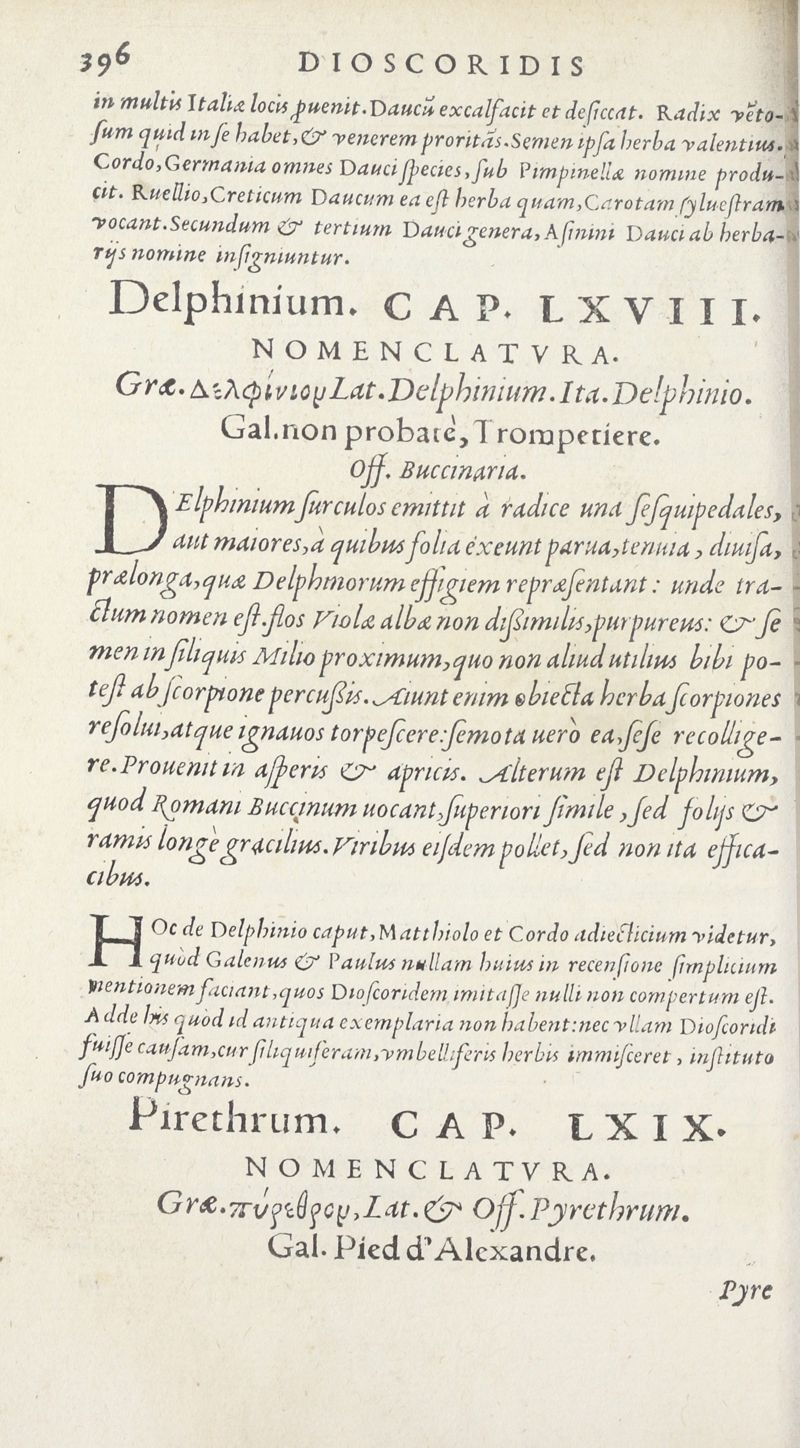 396 DIOSCORIDIS
in multis Italiæ locis ꝓuenit. Daucū excalfacit et deſiccat. Radix vēto-
ſum quid in ſe habet, & venerem proritās. Semen ipſa herba valentius.
Cordo, Germania omnes Dauci ſpecies, ſub Pimpinellæ nomine produ-
cit. Ruellio, Creticum Daucum ea eſt herba quam, Carotam ſylueſtram
vocant. Secundum & tertium Dauci genera, Aſinini Dauci ab herba-
rijs nomine inſigniuntur.
Delphinium. CAP. LXVIII.
NOMENCLATVRA.
Græ. Δελφίνιον Lat. Delphinium. Ita. Delphinio.
Gal. non probatè, Trompetiere.
Off. Buccinaria.
DElphinium ſurculos emittit à radice una ſeſquipedales,
aut maiores, à quibus folia exeunt parua, tenuia, diuiſa,
prælonga, quæ Delphinorum effigiem repræſentant: unde tra-
ctum nomen eſt. flos Violæ albæ non diſsimilis, purpureus: & ſe
men in ſiliquis Milio proximum, quo non aliud utilius bibi po-
teſt ab ſcorpione percuſsis. Aiunt enim obiecta herba ſcorpiones
reſolui, atque ignauos torpeſcere: ſemota uerò ea, ſeſe recollige-
re. Prouenit in aſperis & apricis. Alterum eſt Delphinium,
quod Romani Buccinum uocant, ſuperiori ſimile, ſed folijs &
ramis longè gracilius. Viribus eiſdem pollet, ſed non ita effica-
cibus.
HOc de Delphinio caput, Matthiolo et Cordo adiecticium videtur,
quòd Galenus & Paulus nullam huius in recenſione ſimplicium
mentionem faciant, quos Dioſcoridem imitaſſe nulli non compertum eſt.
Adde his quòd id antiqua exemplaria non habent: nec vllam Dioſcoridi
fuiſſe cauſam, cur ſiliquiferam, vmbelliferis herbis immiſceret, inſtituto
ſuo compugnans.
Pirethrum. CAP. LXIX.
NOMENCLATVRA.
Græ. πύρεθρον, Lat. & Off. Pyrethrum.
Gal. Pied d'Alexandre.
Pyre